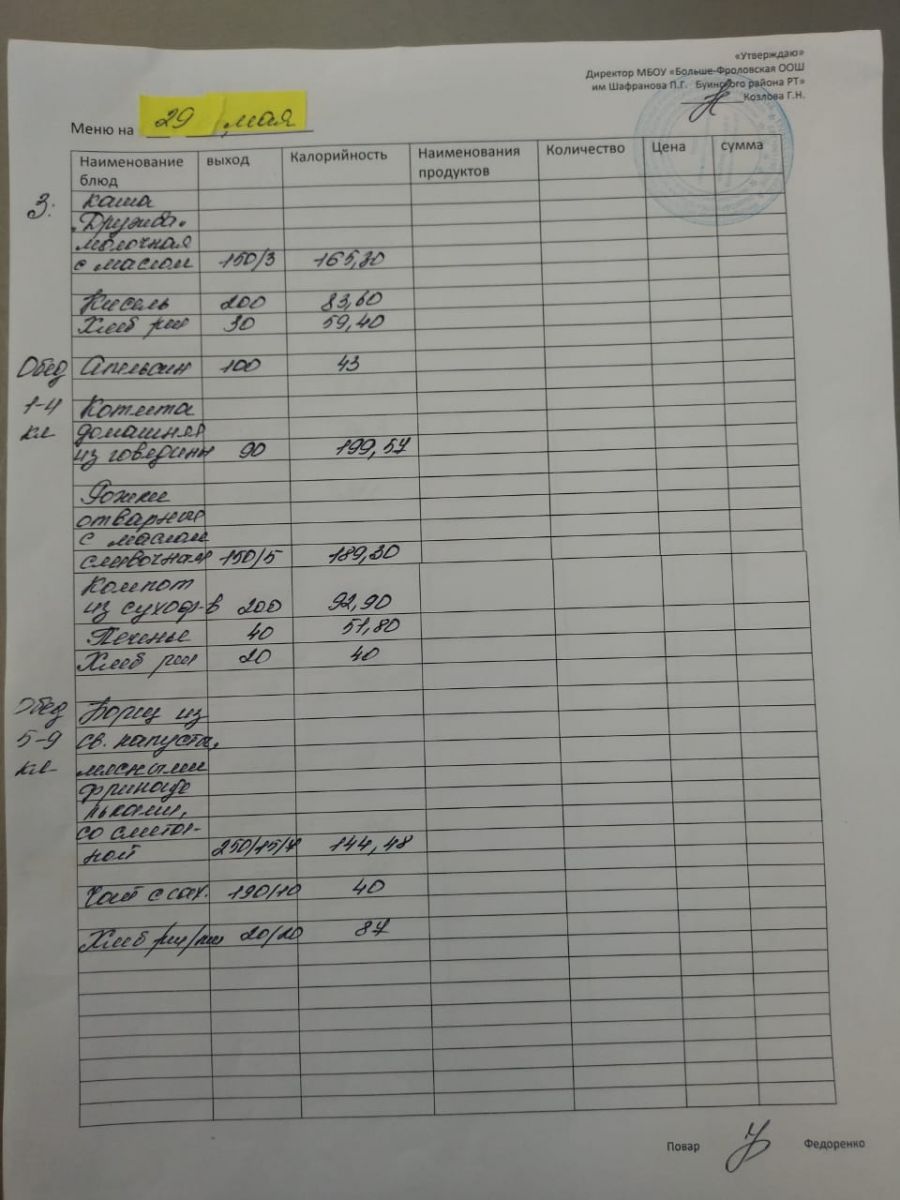 «Утверждаю»
Директор МБОУ «Больше-Фроловская ООШ
им Шафранова П.Г. Буинского района РТ»
Козлова Г.Н.
Меню на 29 мая
Наименование блюд выход Калорийность Наименования продуктов Количество Цена сумма
З: каша
"Дружба"
молочная
с маслом 150/3 165,30
Кисель 200 83,60
Хлеб рж 30 59,40
Обед Апельсин 100 43
1-4 Котлета
кл домашняя
из говядины 90 199,57
Рожки
отварные
с маслом
сливочным 150/5 189,30
Компот
из сухофр-в 200 92,90
Печенье 40 51,80
Хлеб рж 20 40
Обед Борщ из
5-9 св. капусты,
кл мясными
фрикаде
льками,
со смета-
ной 250/15/7 144,48
Чай с сах. 190/10 40
Хлеб рж/пш 20/20 87
Повар Федоренко